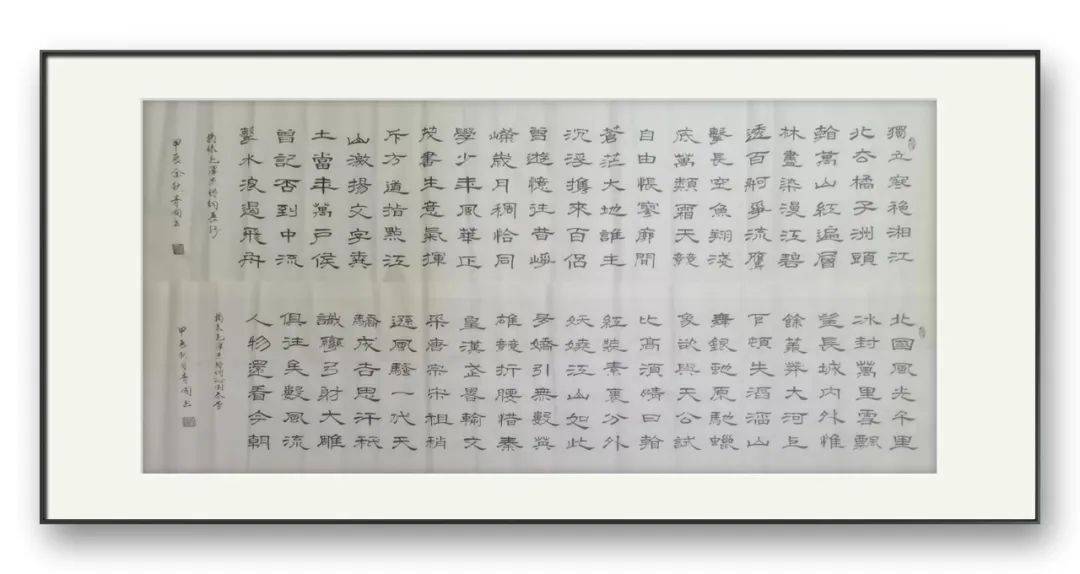 獨立寒穐湘江
北去橘子洲頭
看萬山紅遍層
林盡染漫江碧
透百舸爭流鷹
擊長空魚翔淺
底萬類霜天競
自由悵寥廓問
蒼茫大地誰主
沉浮攜來百侶
曾遊憶往昔崢
嶸歲月稠恰同
學少年風華正
茂書生意氣揮
斥方遒指點江
山激揚文字糞
土當年萬戶侯
曾記否到中流
擊水浪遏飛舟
摘錄毛澤東詩詞長沙
甲辰金秋書
北國風光千里
冰封萬里雪飄
望長城內外惟
餘莽莽大河上
下頓失滔滔山
舞銀蛇原馳蠟
象欲與天公試
比高須晴日看
紅裝素裹分外
妖嬈江山如此
多嬌引無數英
雄競折腰惜秦
皇漢武畧輸文
采唐宗宋祖稍
遜風騷一代天
驕成吉思汗祇
識彎弓射大雕
俱往矣數風流
人物還看今朝
摘錄毛澤東詩詞沁園春雪
甲辰秋月書